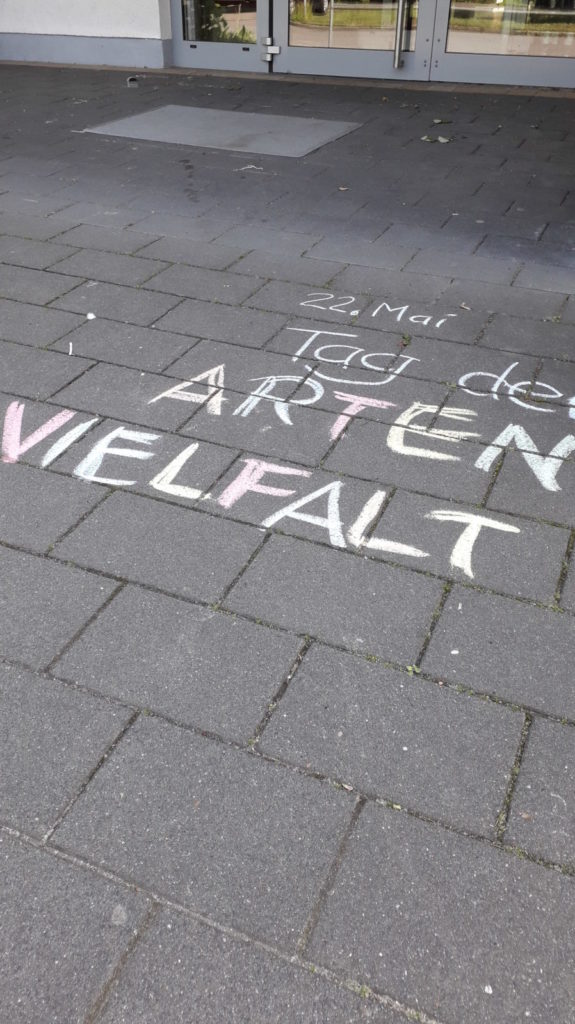 22. Mai
Tag der
ARTEN
VIELFALT